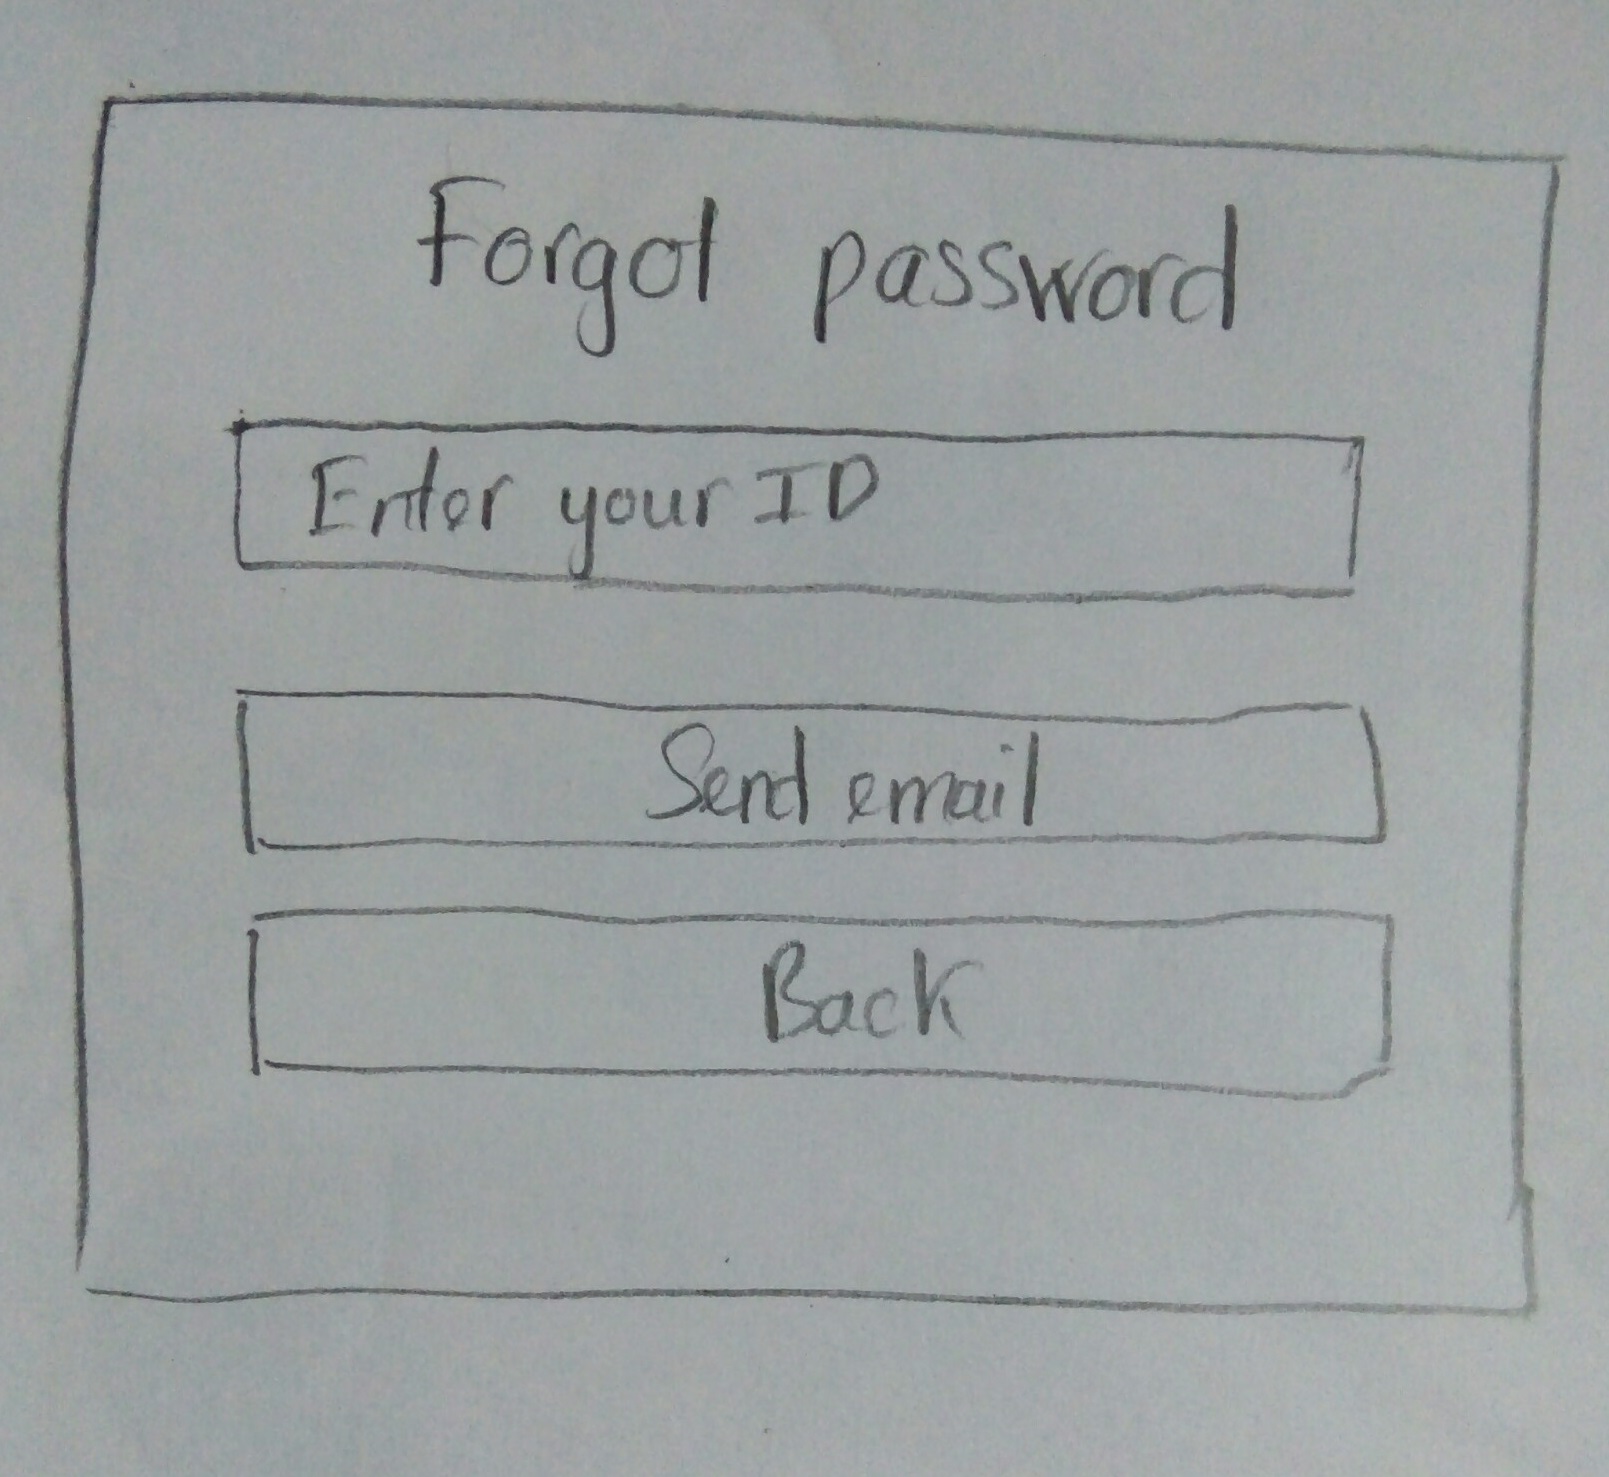 Forgot password
Enter your ID
Send email
Back